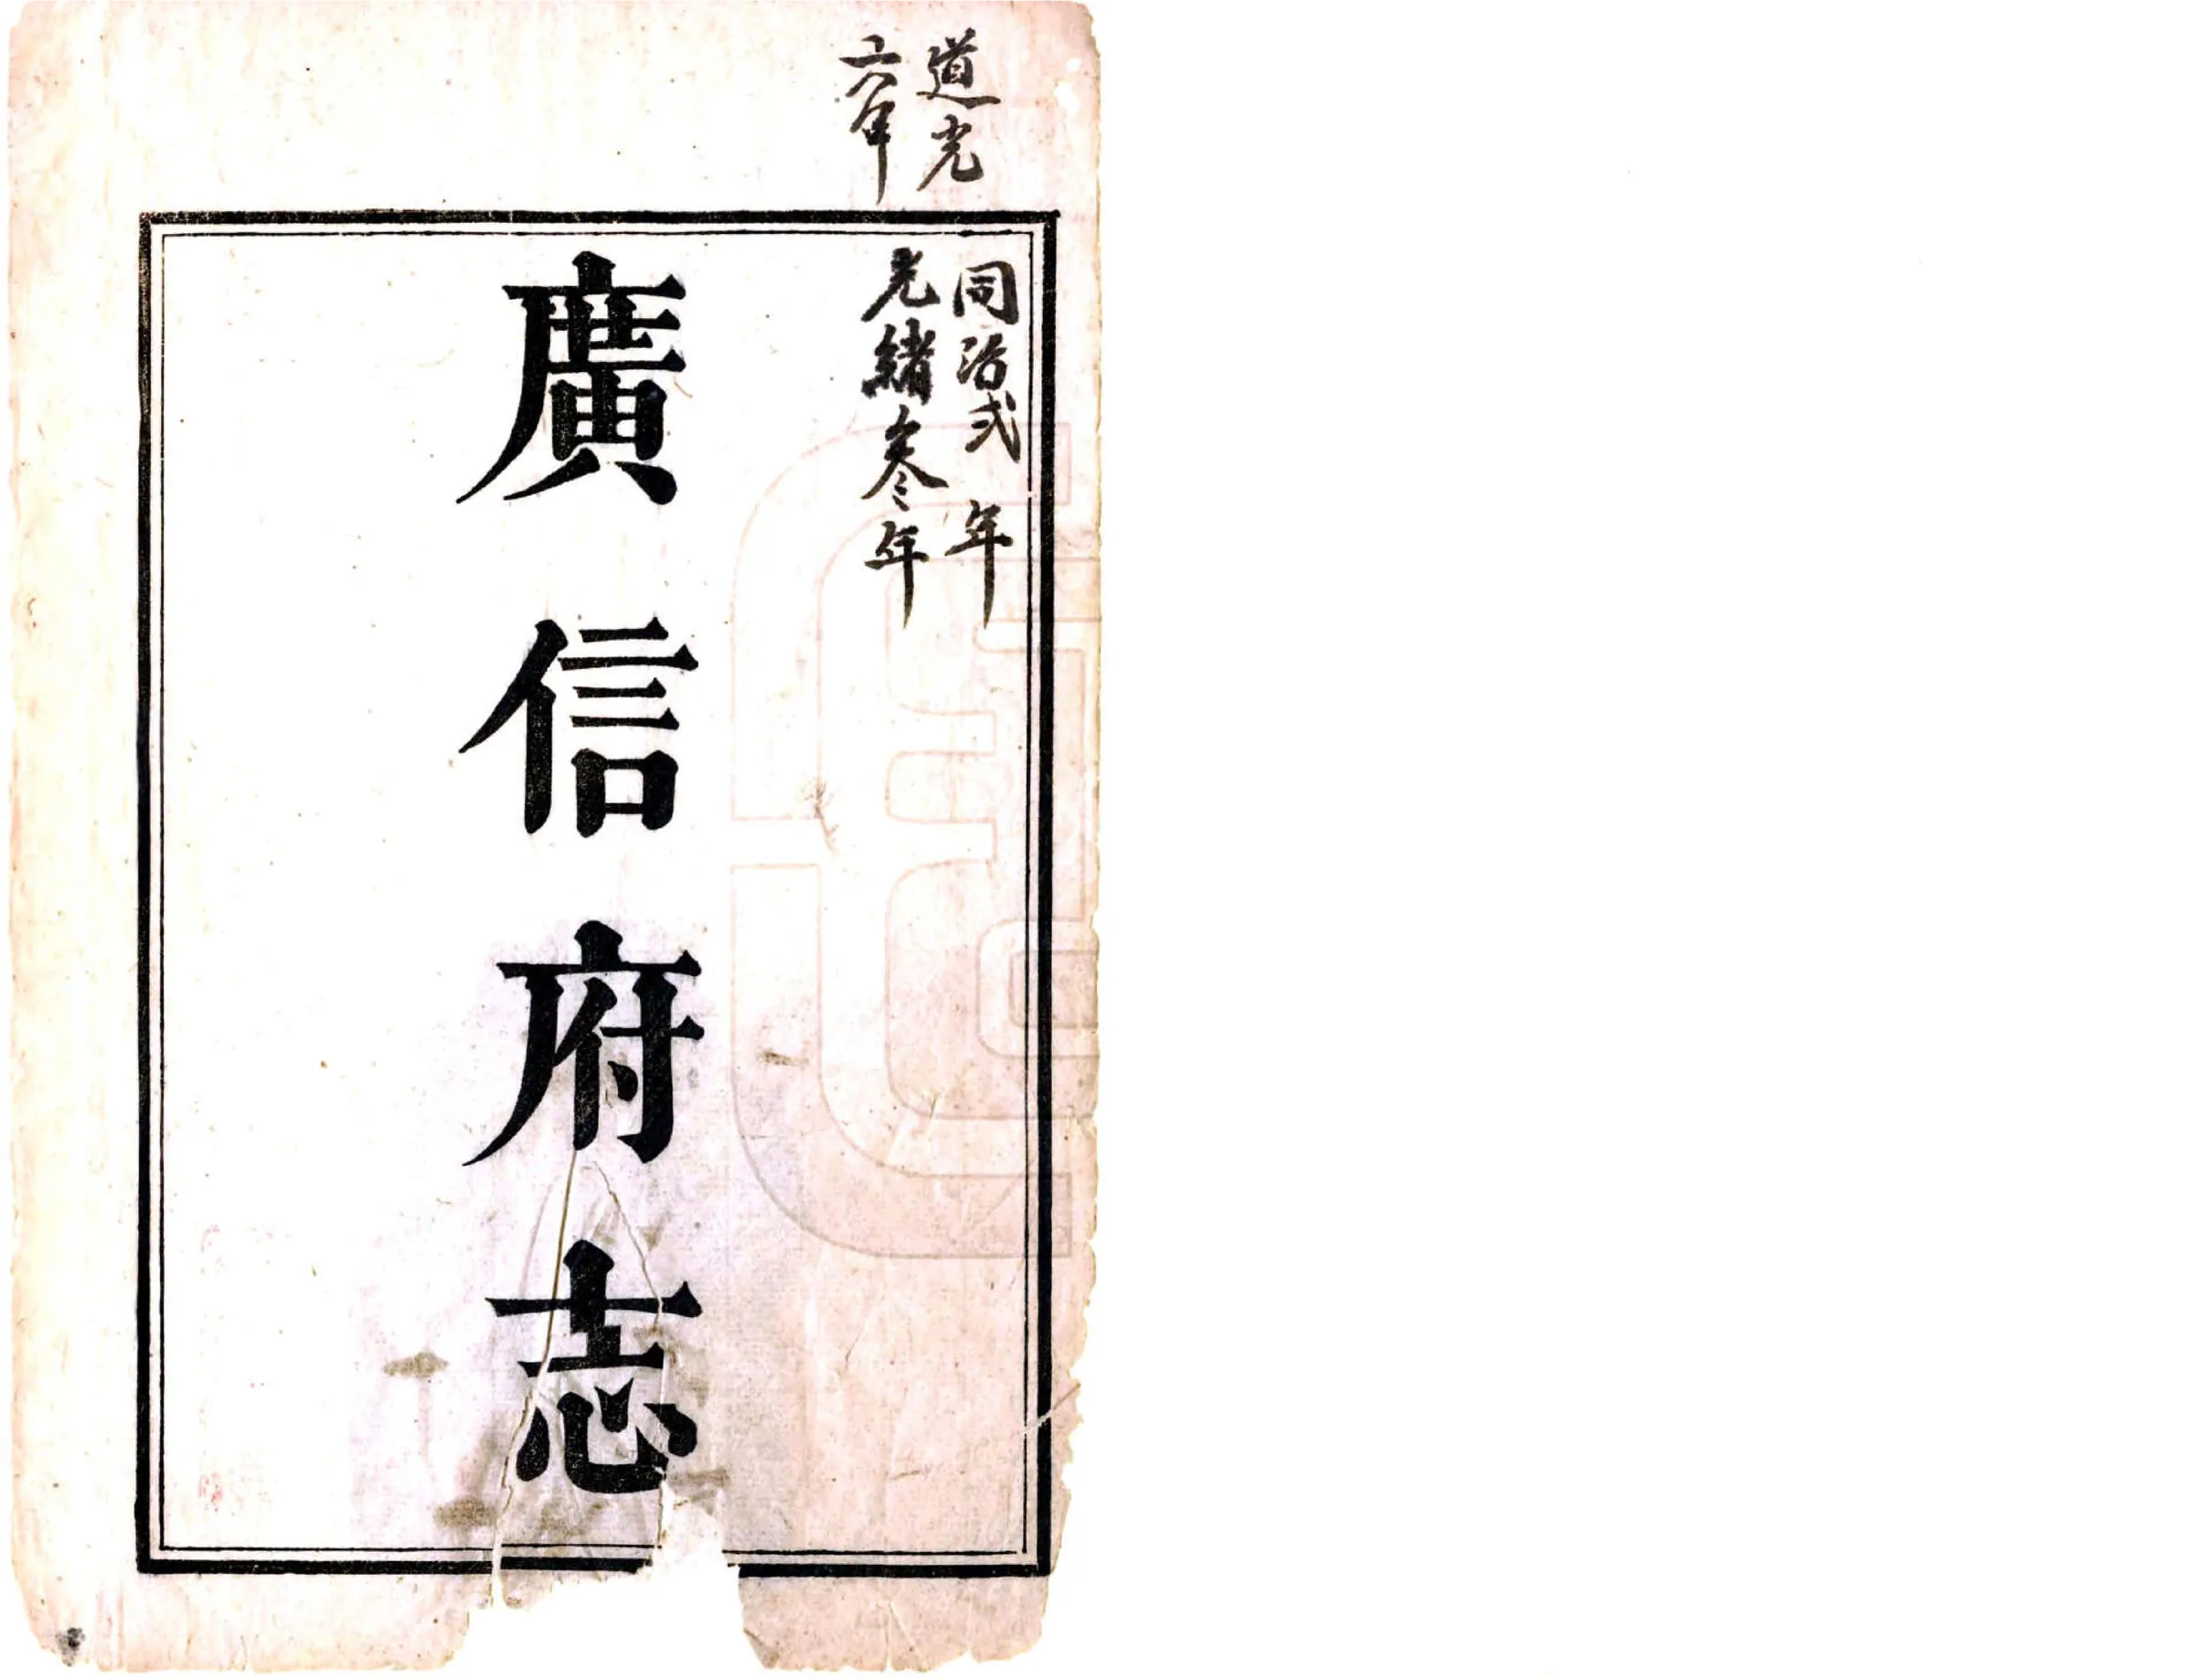 道光
六年
同治弍年
光緒叄年
廣信府志